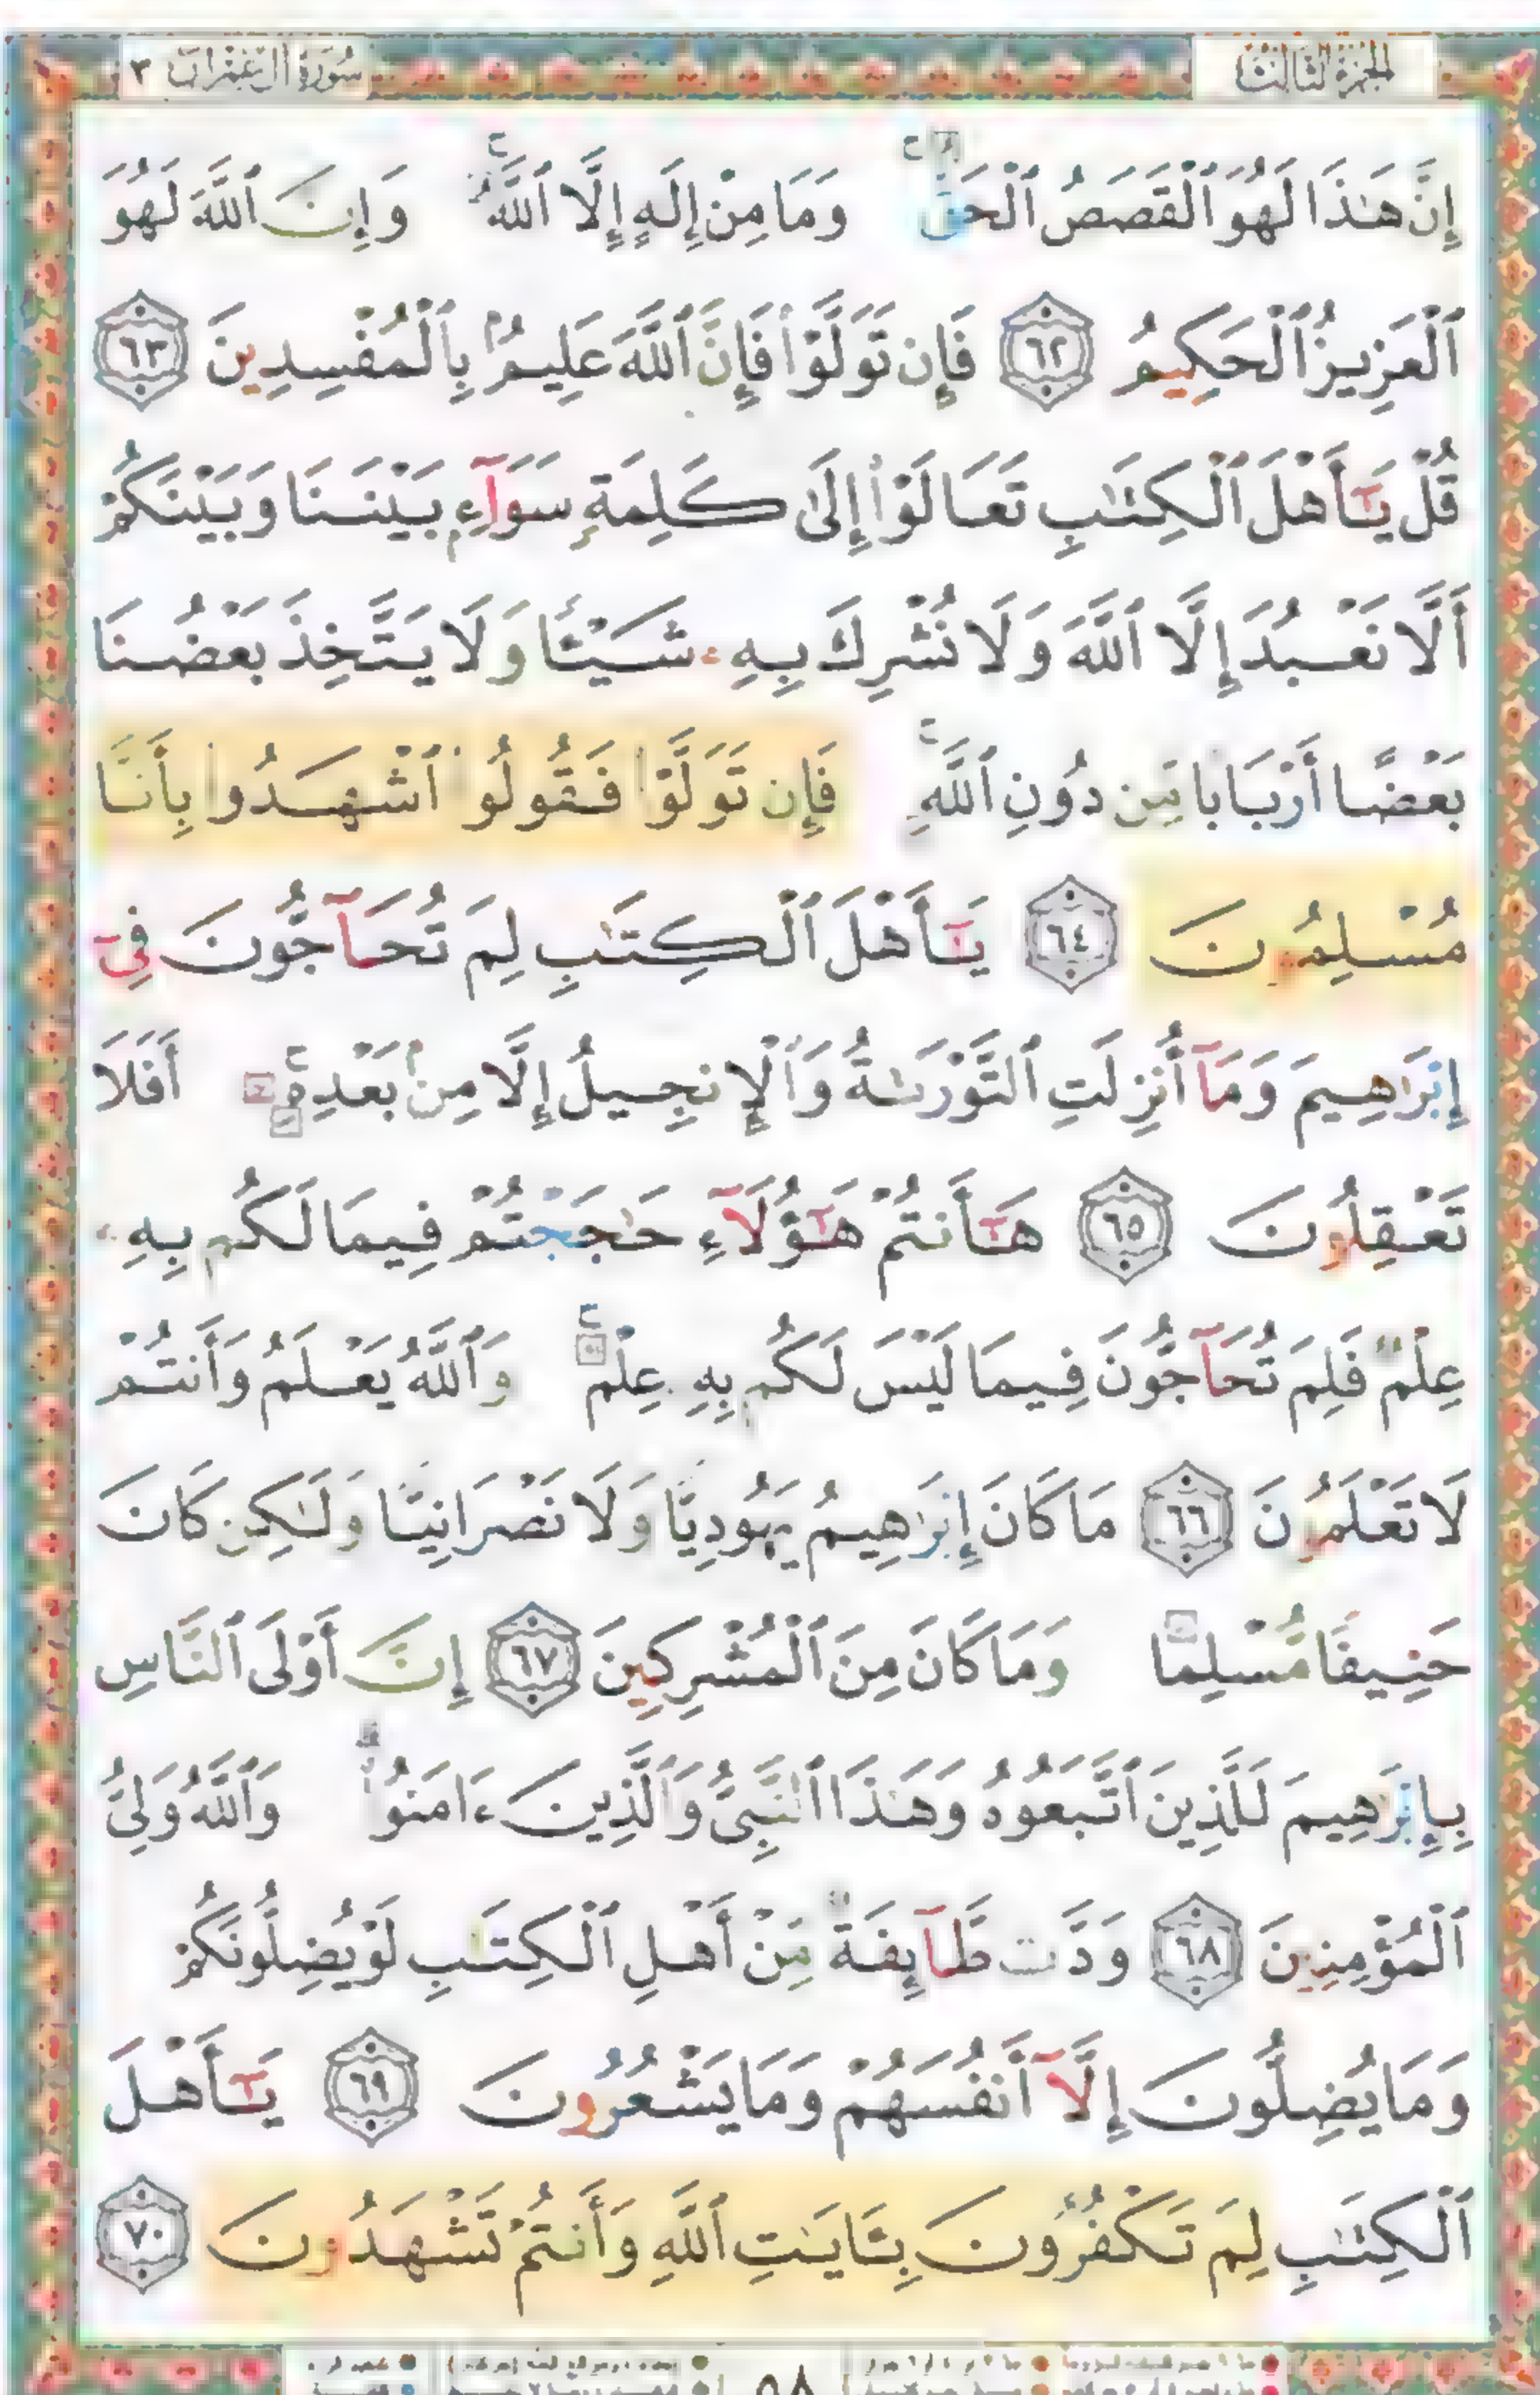 الجزء الثالث
سورة آل عمران ٣
إِنَّ هَٰذَا لَهُوَ ٱلْقَصَصُ ٱلْحَقُّ ۚ وَمَا مِنْ إِلَٰهٍ إِلَّا ٱللَّهُ ۚ وَإِنَّ ٱللَّهَ لَهُوَ
ٱلْعَزِيزُ ٱلْحَكِيمُ ٦٢ فَإِن تَوَلَّوْا۟ فَإِنَّ ٱللَّهَ عَلِيمٌۢ بِٱلْمُفْسِدِينَ ٦٣
قُلْ يَٰٓأَهْلَ ٱلْكِتَٰبِ تَعَالَوْا۟ إِلَىٰ كَلِمَةٍ سَوَآءٍۭ بَيْنَنَا وَبَيْنَكُمْ
أَلَّا نَعْبُدَ إِلَّا ٱللَّهَ وَلَا نُشْرِكَ بِهِۦ شَيْـًٔا وَلَا يَتَّخِذَ بَعْضُنَا
بَعْضًا أَرْبَابًا مِّن دُونِ ٱللَّهِ ۚ فَإِن تَوَلَّوْا۟ فَقُولُوا۟ ٱشْهَدُوا۟ بِأَنَّا
مُسْلِمُونَ ٦٤ يَٰٓأَهْلَ ٱلْكِتَٰبِ لِمَ تُحَآجُّونَ فِىٓ
إِبْرَٰهِيمَ وَمَآ أُنزِلَتِ ٱلتَّوْرَىٰةُ وَٱلْإِنجِيلُ إِلَّا مِنۢ بَعْدِهِۦٓ ۚ أَفَلَا
تَعْقِلُونَ ٦٥ هَٰٓأَنتُمْ هَٰٓؤُلَآءِ حَٰجَجْتُمْ فِيمَا لَكُم بِهِۦ
عِلْمٌ فَلِمَ تُحَآجُّونَ فِيمَا لَيْسَ لَكُم بِهِۦ عِلْمٌ ۚ وَٱللَّهُ يَعْلَمُ وَأَنتُمْ
لَا تَعْلَمُونَ ٦٦ مَا كَانَ إِبْرَٰهِيمُ يَهُودِيًّا وَلَا نَصْرَانِيًّا وَلَٰكِن كَانَ
حَنِيفًا مُّسْلِمًا وَمَا كَانَ مِنَ ٱلْمُشْرِكِينَ ٦٧ إِنَّ أَوْلَى ٱلنَّاسِ
بِإِبْرَٰهِيمَ لَلَّذِينَ ٱتَّبَعُوهُ وَهَٰذَا ٱلنَّبِىُّ وَٱلَّذِينَ ءَامَنُوا۟ ۗ وَٱللَّهُ وَلِىُّ
ٱلْمُؤْمِنِينَ ٦٨ وَدَّت طَّآئِفَةٌ مِّنْ أَهْلِ ٱلْكِتَٰبِ لَوْ يُضِلُّونَكُمْ
وَمَا يُضِلُّونَ إِلَّآ أَنفُسَهُمْ وَمَا يَشْعُرُونَ ٦٩ يَٰٓأَهْلَ
ٱلْكِتَٰبِ لِمَ تَكْفُرُونَ بِـَٔايَٰتِ ٱللَّهِ وَأَنتُمْ تَشْهَدُونَ ٧٠
٥٨